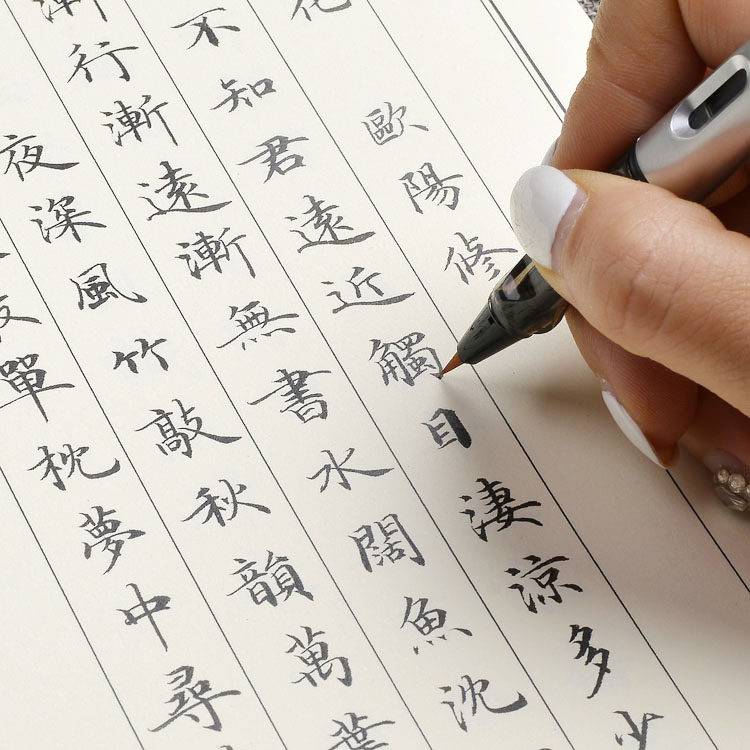 歐陽修
不知君遠近觸目淒涼多少
漸行漸遠漸無書水闊魚沈
夜深風竹敲秋韻萬葉
單枕夢中尋